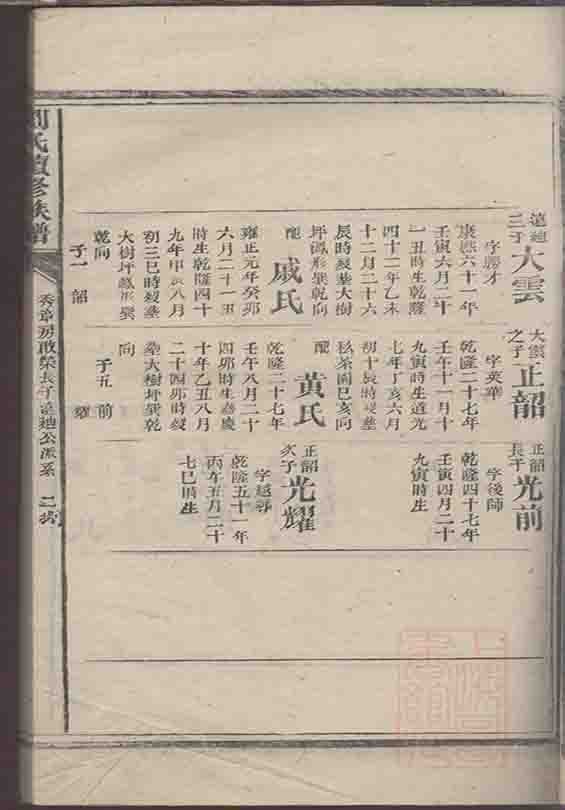 遠迪三子大雲
字勝才
康熙六十一年
壬寅六月二十
一丑時生乾隆
四十二年乙未
十二月二十六
辰時歿塟大樹
坪鳳形巽乾向
配戚氏
雍正元年癸卯
六月二十一丑
時生乾隆四十
九年甲辰八月
初三巳時歿塟
大樹坪鳳形巽
乾向
子一 韶
大雲之子正韶
字英華
乾隆二十七年
壬午十一月十
九寅時生道光
七年丁亥六月
初十辰時歿塟
茶園巳亥向
配黃氏
乾隆二十七年
壬午八月二十
四卯時生嘉慶
十年乙丑八月
二十四卯時歿
塟大樹坪巽乾
向
子五 前 耀
正韶長子光前
字後師
乾隆四十七年
壬寅四月二十
九寅時生
正韶次子光耀
字遠尋
乾隆五十一年
丙午五月二十
七巳時生
劉氏續修族譜
秀章房啟榮長子遠迪公派系